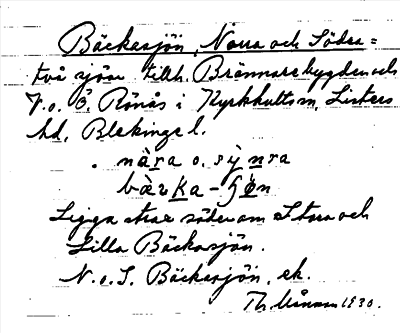 Bäckasjön, Norra och Södra =
två sjöar tillh. Brännarebygden och
V. o. Ö. Rönås i Kyrkhults sn, Listers
hd, Blekinge l.
nàra o. sỳnra
bæ̀rka-ʃøn
Ligga strax söder om Stora och
Lilla Bäckasjön.
N. o. S. Bäckasjön, ek.
Th. Månsson 1930.